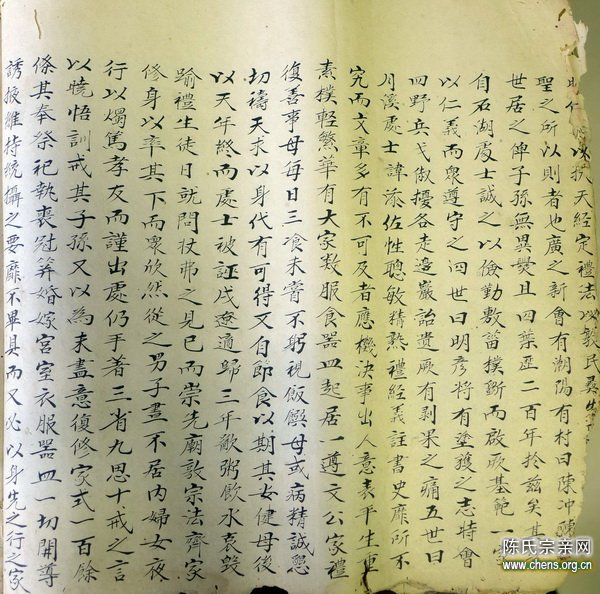 以扶天經定禮法以敦民彝
聖之所以則者也廣之新會有潮陽有村曰陳冲
世居之俾子孫無異爨且四葉歷二百年於茲矣其
自石湖處士誠之以儉勤敷菑撲斵而啟厥基範一
以仁義而衆遵守之四世曰明彥將有塗雘之志時會
四野兵戈俶擾各走邊巖詒貴厥有剥果之痛五世曰
月溪處士諱添佐性聰敏精熟禮經義註書史靡所不
究而文章多有不可及者應機決事出人意表平生重
素撲輕繁華有大家数服食器皿起居一遵文公家禮
復善事母每日三飡未嘗不躬視飯饌母或病精誠懇
切禱天求以身代有可得又自節食以期其女健母後
以天年終而處士被証戍遼適歸三年歠粥飲水哀毀
踰禮生徒日就問杖弗之見已而崇先廟敦宗法齊家
修身以率其下而衆欣然從之男子晝不居内婦女夜
行以燭篤孝友而謹出處仍手著三省九思十戒之言
以曉悟訓戒其子孫又以為未盡意復修家式一百餘
條其奉祭祀執喪冠笄婚嫁宮室衣服器皿一切開導
誘掖維持統攝之要靡不畢具而又必以身先之行之家
陈氏宗亲网
www.chens.org.cn